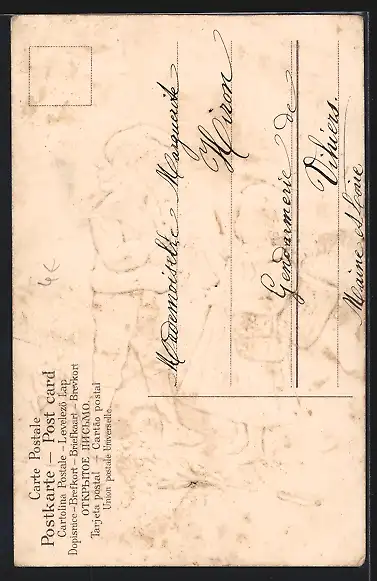 Carte Postale
Postkarte – Post card
Cartolina Postale – Levelező Lap
Dopisnice – Brefkort – Briefkaart – Brevkort
ОТКРЫТОЕ ПИСЬМО.
Tarjeta postal – Cartão postal
Union postale Universelle.
4€
Mademoiselle Marguerite
Hiron
Gendarmerie de
Vihiers.
Maine et Loire